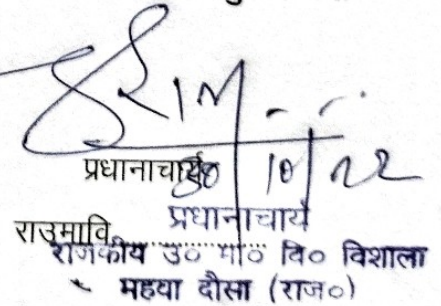 प्रधानाचार्य
10/22
राउमावि............ प्रधानाचार्य
राजकीय उ० मा० वि० विशाला
महवा दौसा (राज०)